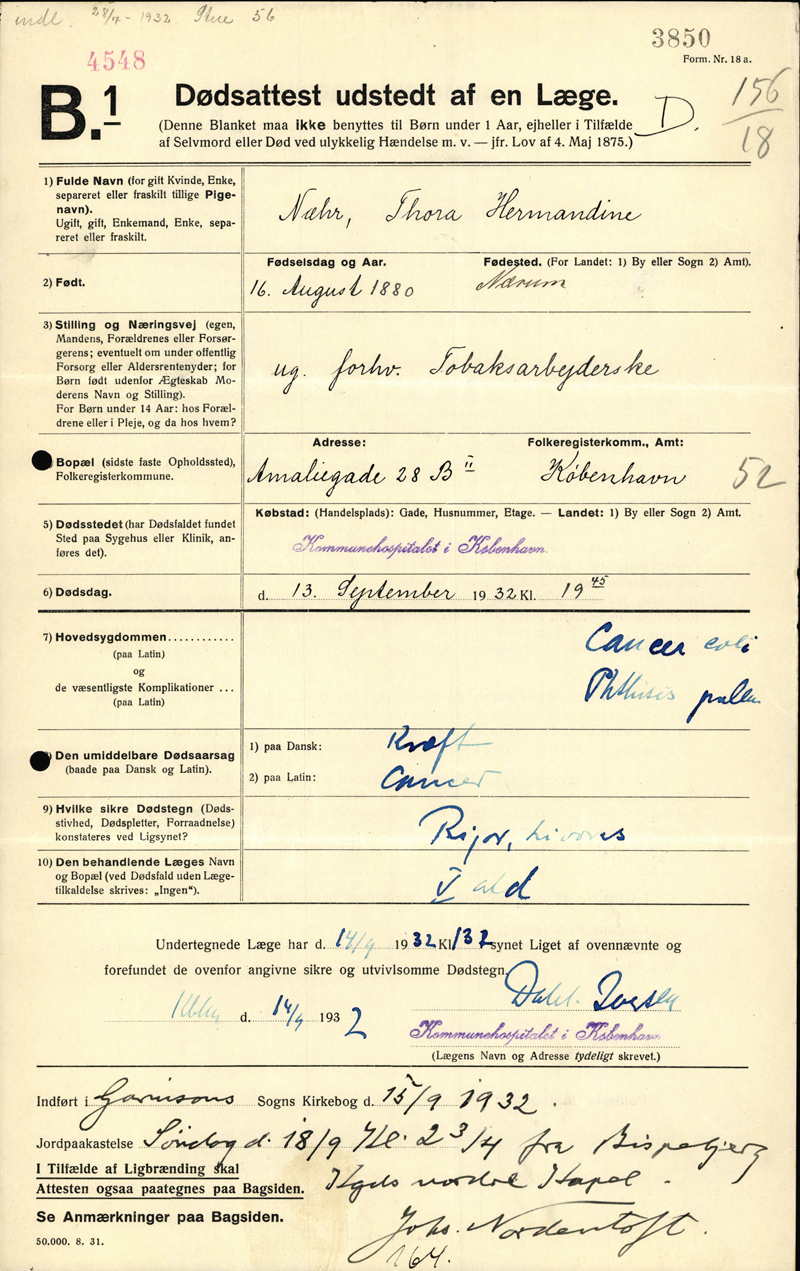 indl. 28/4 - 1932 Stue 56
3850
4548
Form. Nr. 18 a.
B.1
Dødsattest udstedt af en Læge.
(Denne Blanket maa ikke benyttes til Børn under 1 Aar, ejheller i Tilfælde
af Selvmord eller Død ved ulykkelig Hændelse m. v. — jfr. Lov af 4. Maj 1875.)
D.
156
18
1) Fulde Navn (for gift Kvinde, Enke,
separeret eller fraskilt tillige Pige-
navn).
Ugift, gift, Enkemand, Enke, sepa-
reret eller fraskilt.
Næhr, Thora Hermandine
2) Født.
Fødselsdag og Aar.
Fødested. (For Landet: 1) By eller Sogn 2) Amt).
16. August 1880
Nærum
3) Stilling og Næringsvej (egen,
Mandens, Forældrenes eller Forsør-
gerens; eventuelt om under offentlig
Forsorg eller Aldersrentenyder; for
Børn født udenfor Ægteskab Mo-
derens Navn og Stilling).
For Børn under 14 Aar: hos Foræl-
drene eller i Pleje, og da hos hvem?
ug. forhv. Tobaksarbejderske
Bopæl (sidste faste Opholdssted),
Folkeregisterkommune.
Adresse:
Folkeregisterkomm., Amt:
Amaliegade 28 B II
København
52
5) Dødsstedet (har Dødsfaldet fundet
Sted paa Sygehus eller Klinik, an-
føres det).
Købstad: (Handelsplads): Gade, Husnummer, Etage. — Landet: 1) By eller Sogn 2) Amt.
Kommunehospitalet i København.
6) Dødsdag.
d. 13. September 1932 Kl. 19 45
7) Hovedsygdommen
(paa Latin)
og
de væsentligste Komplikationer ...
(paa Latin)
Cancer coli
Phthisis pulm
Den umiddelbare Dødsaarsag
(baade paa Dansk og Latin).
1) paa Dansk: Kræft
2) paa Latin: Cancer
9) Hvilke sikre Dødstegn (Døds-
stivhed, Dødspletter, Forraadnelse)
konstateres ved Ligsynet?
Rigor, livores
10) Den behandlende Læges Navn
og Bopæl (ved Dødsfald uden Læge-
tilkaldelse skrives: „Ingen").
V afd
Undertegnede Læge har d. 14/9 1932 Kl 132 synet Liget af ovennævnte og
forefundet de ovenfor angivne sikre og utvivlsomme Dødstegn.
Kbh d. 14/9 1932
Dahl-Iversen
Kommunehospitalet i København
(Lægens Navn og Adresse tydeligt skrevet.)
Indført i Garnisons Sogns Kirkebog d. 15/9 1932.
Jordpaakastelse Søndag d. 18/9 Kl. 2 3/4 fra Bispebjerg
I Tilfælde af Ligbrænding skal
Attesten ogsaa paategnes paa Bagsiden.
Kgds nordre Kapel.
Se Anmærkninger paa Bagsiden.
Johs. Nordentoft.
50.000. 8. 31.
164.